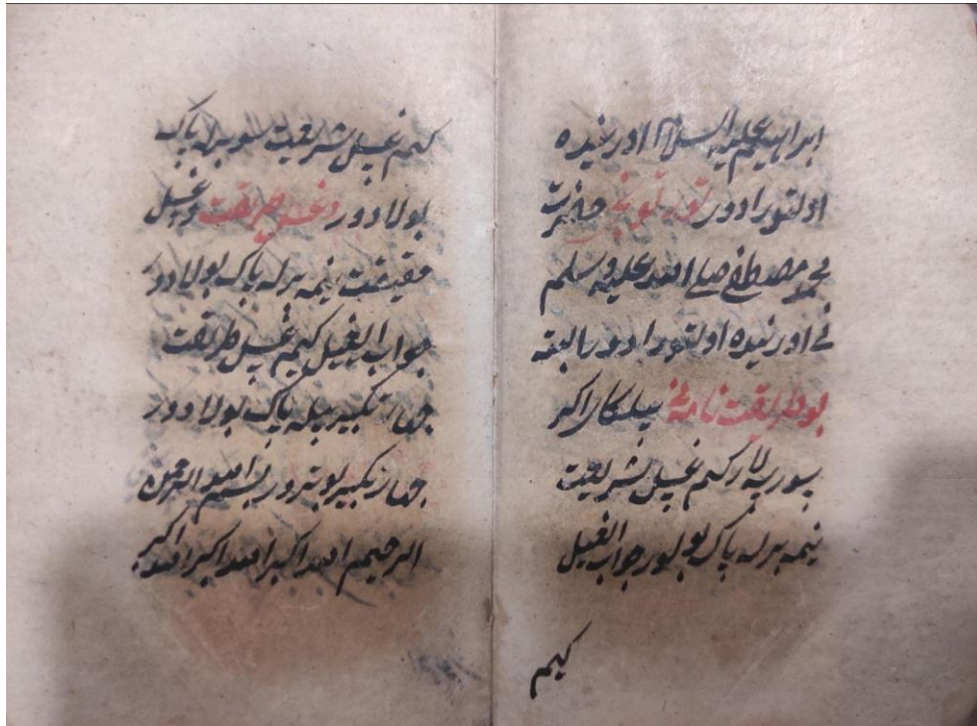 ابراهیم علیه السلام اورنیده
اولتورادور تورتونچی حضرت
محمد مصطفی صلی الله علیه وسلم
نی اورنیده اولتورادور البته
بو طریقت نامه نی بیلکای اکر
سورسه لار کیم غسل شریعت
نیمه برله پاک بولور جواب ایغیل
کیم
کیم غسل شریعت سو برله پاک
بولادور و غسل طریقت و غسل
حقیقت نیمه برله پاک بولادور
جواب ایغیل کیم غسل طریقت
چهار تکبیر بیله پاک بولادور
چهار تکبیر بوتورور بسم الله الرحمن
الرحیم الله اکبر الله اکبر الله اکبر